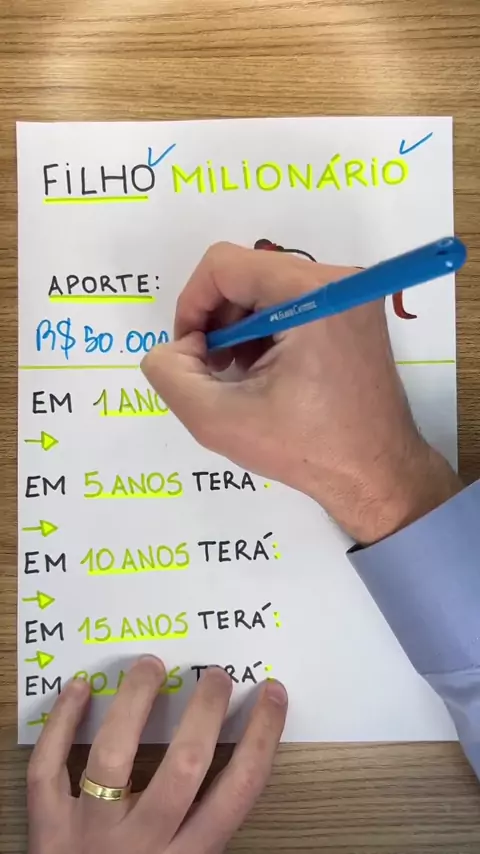 FILHO MILIONÁRIO
APORTE:
R$50.000
EM 1 ANO
EM 5 ANOS TERÁ:
EM 10 ANOS TERÁ:
EM 15 ANOS TERÁ:
EM TERÁ: